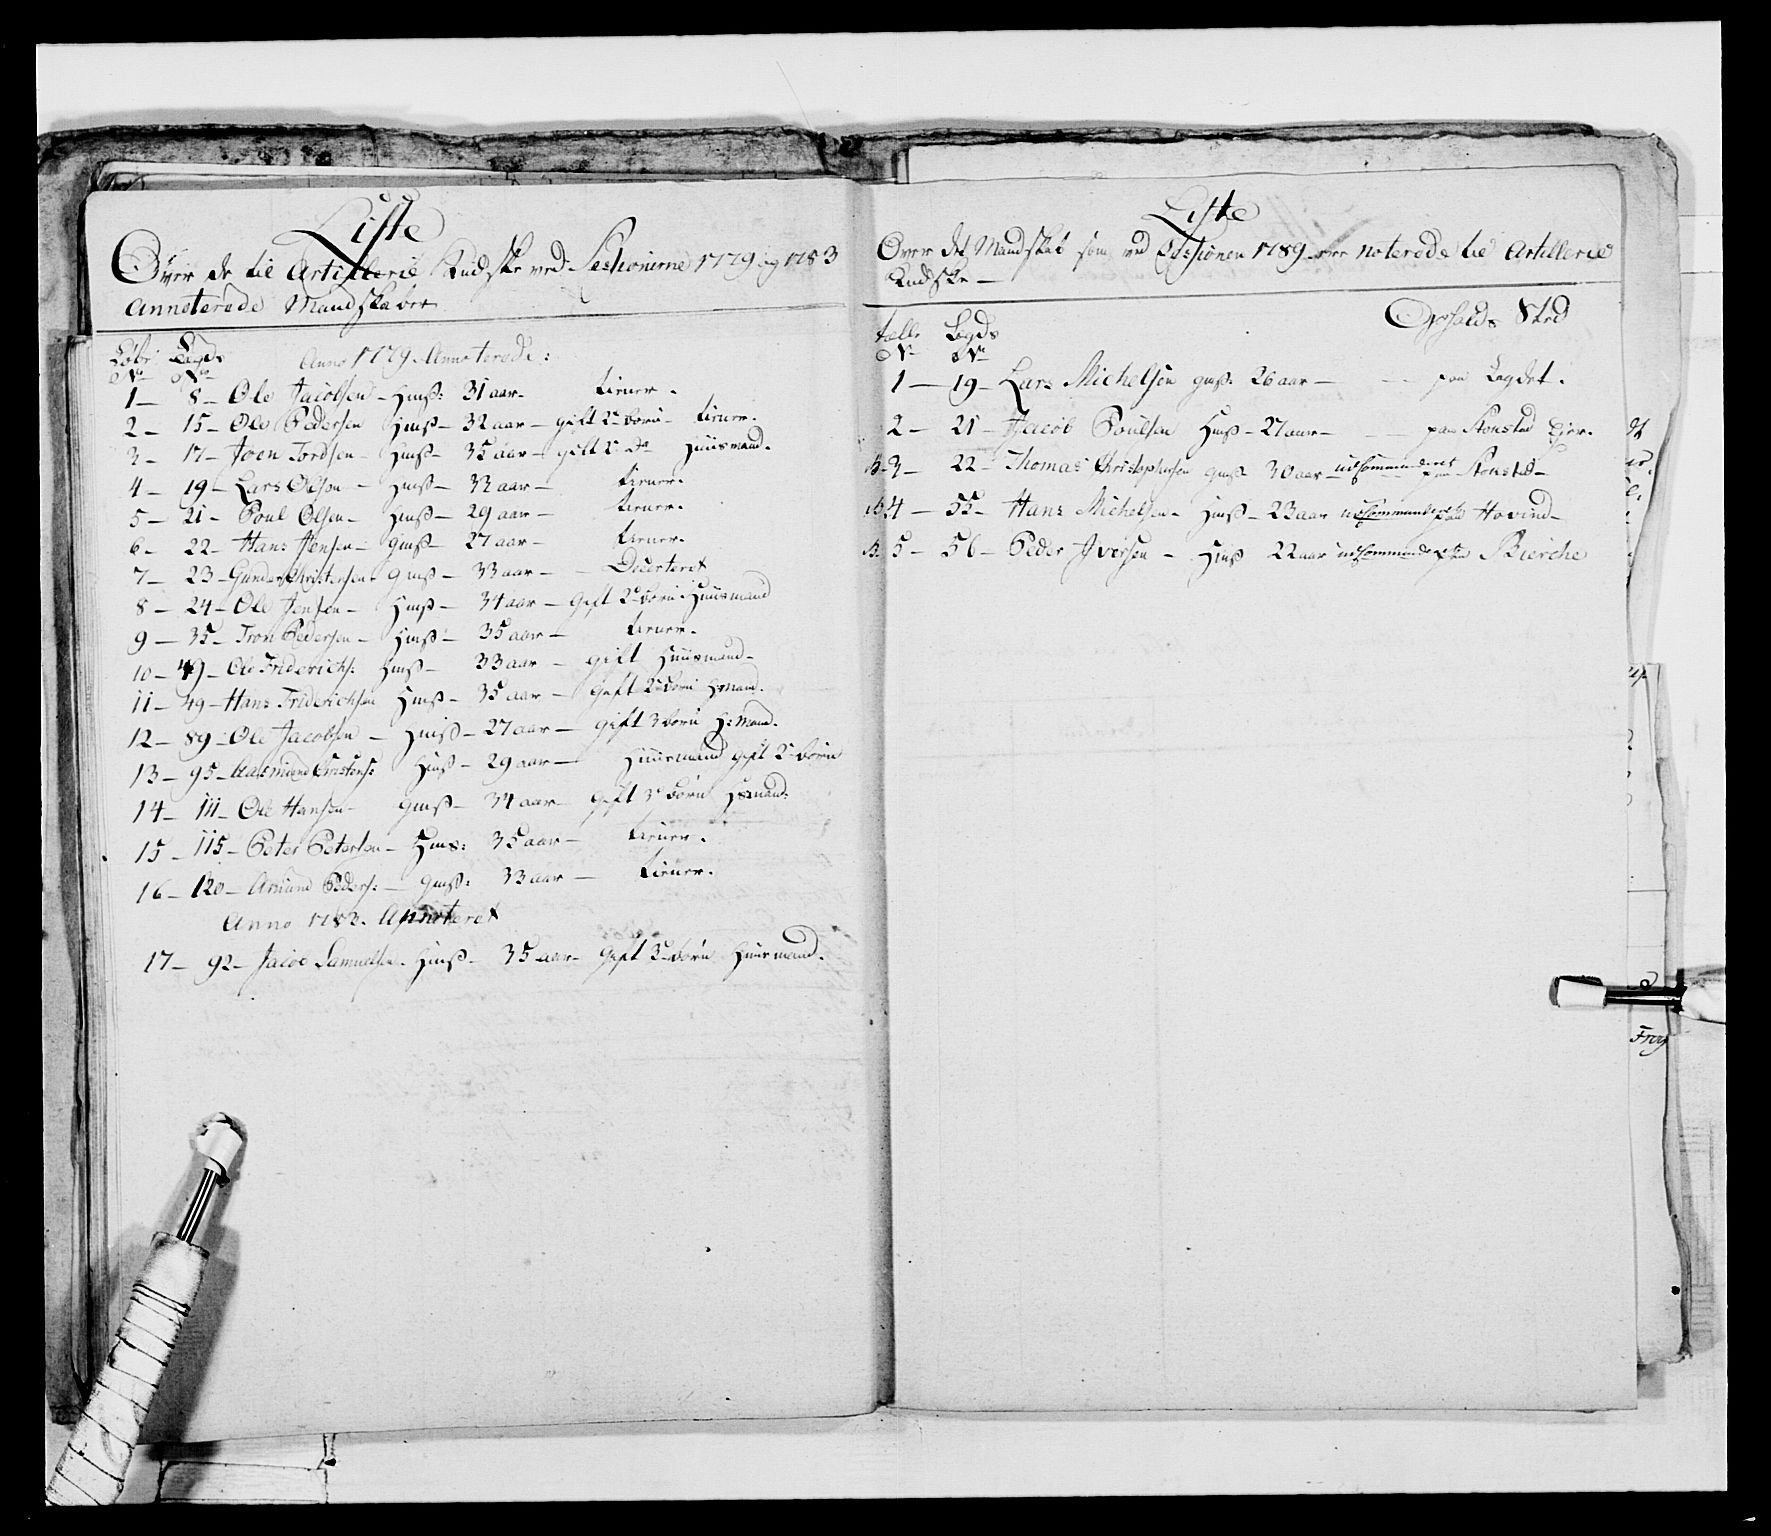 Liste
Over de til Artillerie Kudske ved Sessionerne 1779 og 1783
Annoterede Mandskaber
Løbe Lægds Anno 1779 Annoterede:
No No
1 — 8 — Ole Jacobsen — Huuß: 31 aar — tiener.
2 — 15 — Ole Pedersen Huuß — 32 aar — gift 2 børn — tiener.
3 — 17 — Joen Tordsen — Huuß — 35 aar — gift 2 do Huusmand.
4 — 19 — Lars Olsen — Huuß — 32 aar — tiener.
5 — 21 — Poul Olsen — Huuß — 29 aar — tiener.
6 — 22 — Hans Jensen — Gmß — 27 aar — tiener.
7 — 23 — Gunder Christensen Gmß — 33 aar — Deserteret
8 — 24 — Ole Jensen — Huuß — 34 aar — Gift 2 børn Huusmand
9 — 35 — Tron Pedersen — Huuß — 35 aar — tiener.
10 — 49 — Ole Friderichs: Huuß — 33 aar — gift Huusmand —
11 — 49 — Hans Friderichsen Huuß — 35 aar — Gift 2 børn H:Mand.
12 — 89 — Ole Jacobsen — Huuß — 27 aar — gift 3 børn H:Mand.
13 — 95 — Christens: Huuß — 29 aar — Huusmand gift 2 børn
14 — 111 — Ole Hansen — Gmß — 34 aar — gift 3 børn H:mand:
15 — 115 — Peter Petersen — Huus: 35 aar — tiener.
16 — 120 — Amund Peders: — Gmß: 33 aar — tiener.
Anno 1783. Annoteret
17 — 92 — Jacob Samuelsen. Huuß — 35 aar — Gift 3 børn Huusmand.
Liste
Over det Mandskab som ved Sessionen 1789 ere noterede til Artillerie
Kudske —
Opholds Sted
talle Lægds
No No
1 — 19 — Lars Michelsen Gmß. 26 aar — paa Lægdet.
2 — 21 — Jacob Poulsen Huuß — 27 aar — paa Stonsted Eier.
3 — 22 — Thomas Christophersen Gmß 30 aar — udcommanderet paa Stonsted —
4 — 55 — Hans Michelsen — Huuß — 23 aar udcommanderet paa Hovind —
5 — 56 — Peder Iversen — Huuß 22 aar udcommanderet paa Bierche
Frog